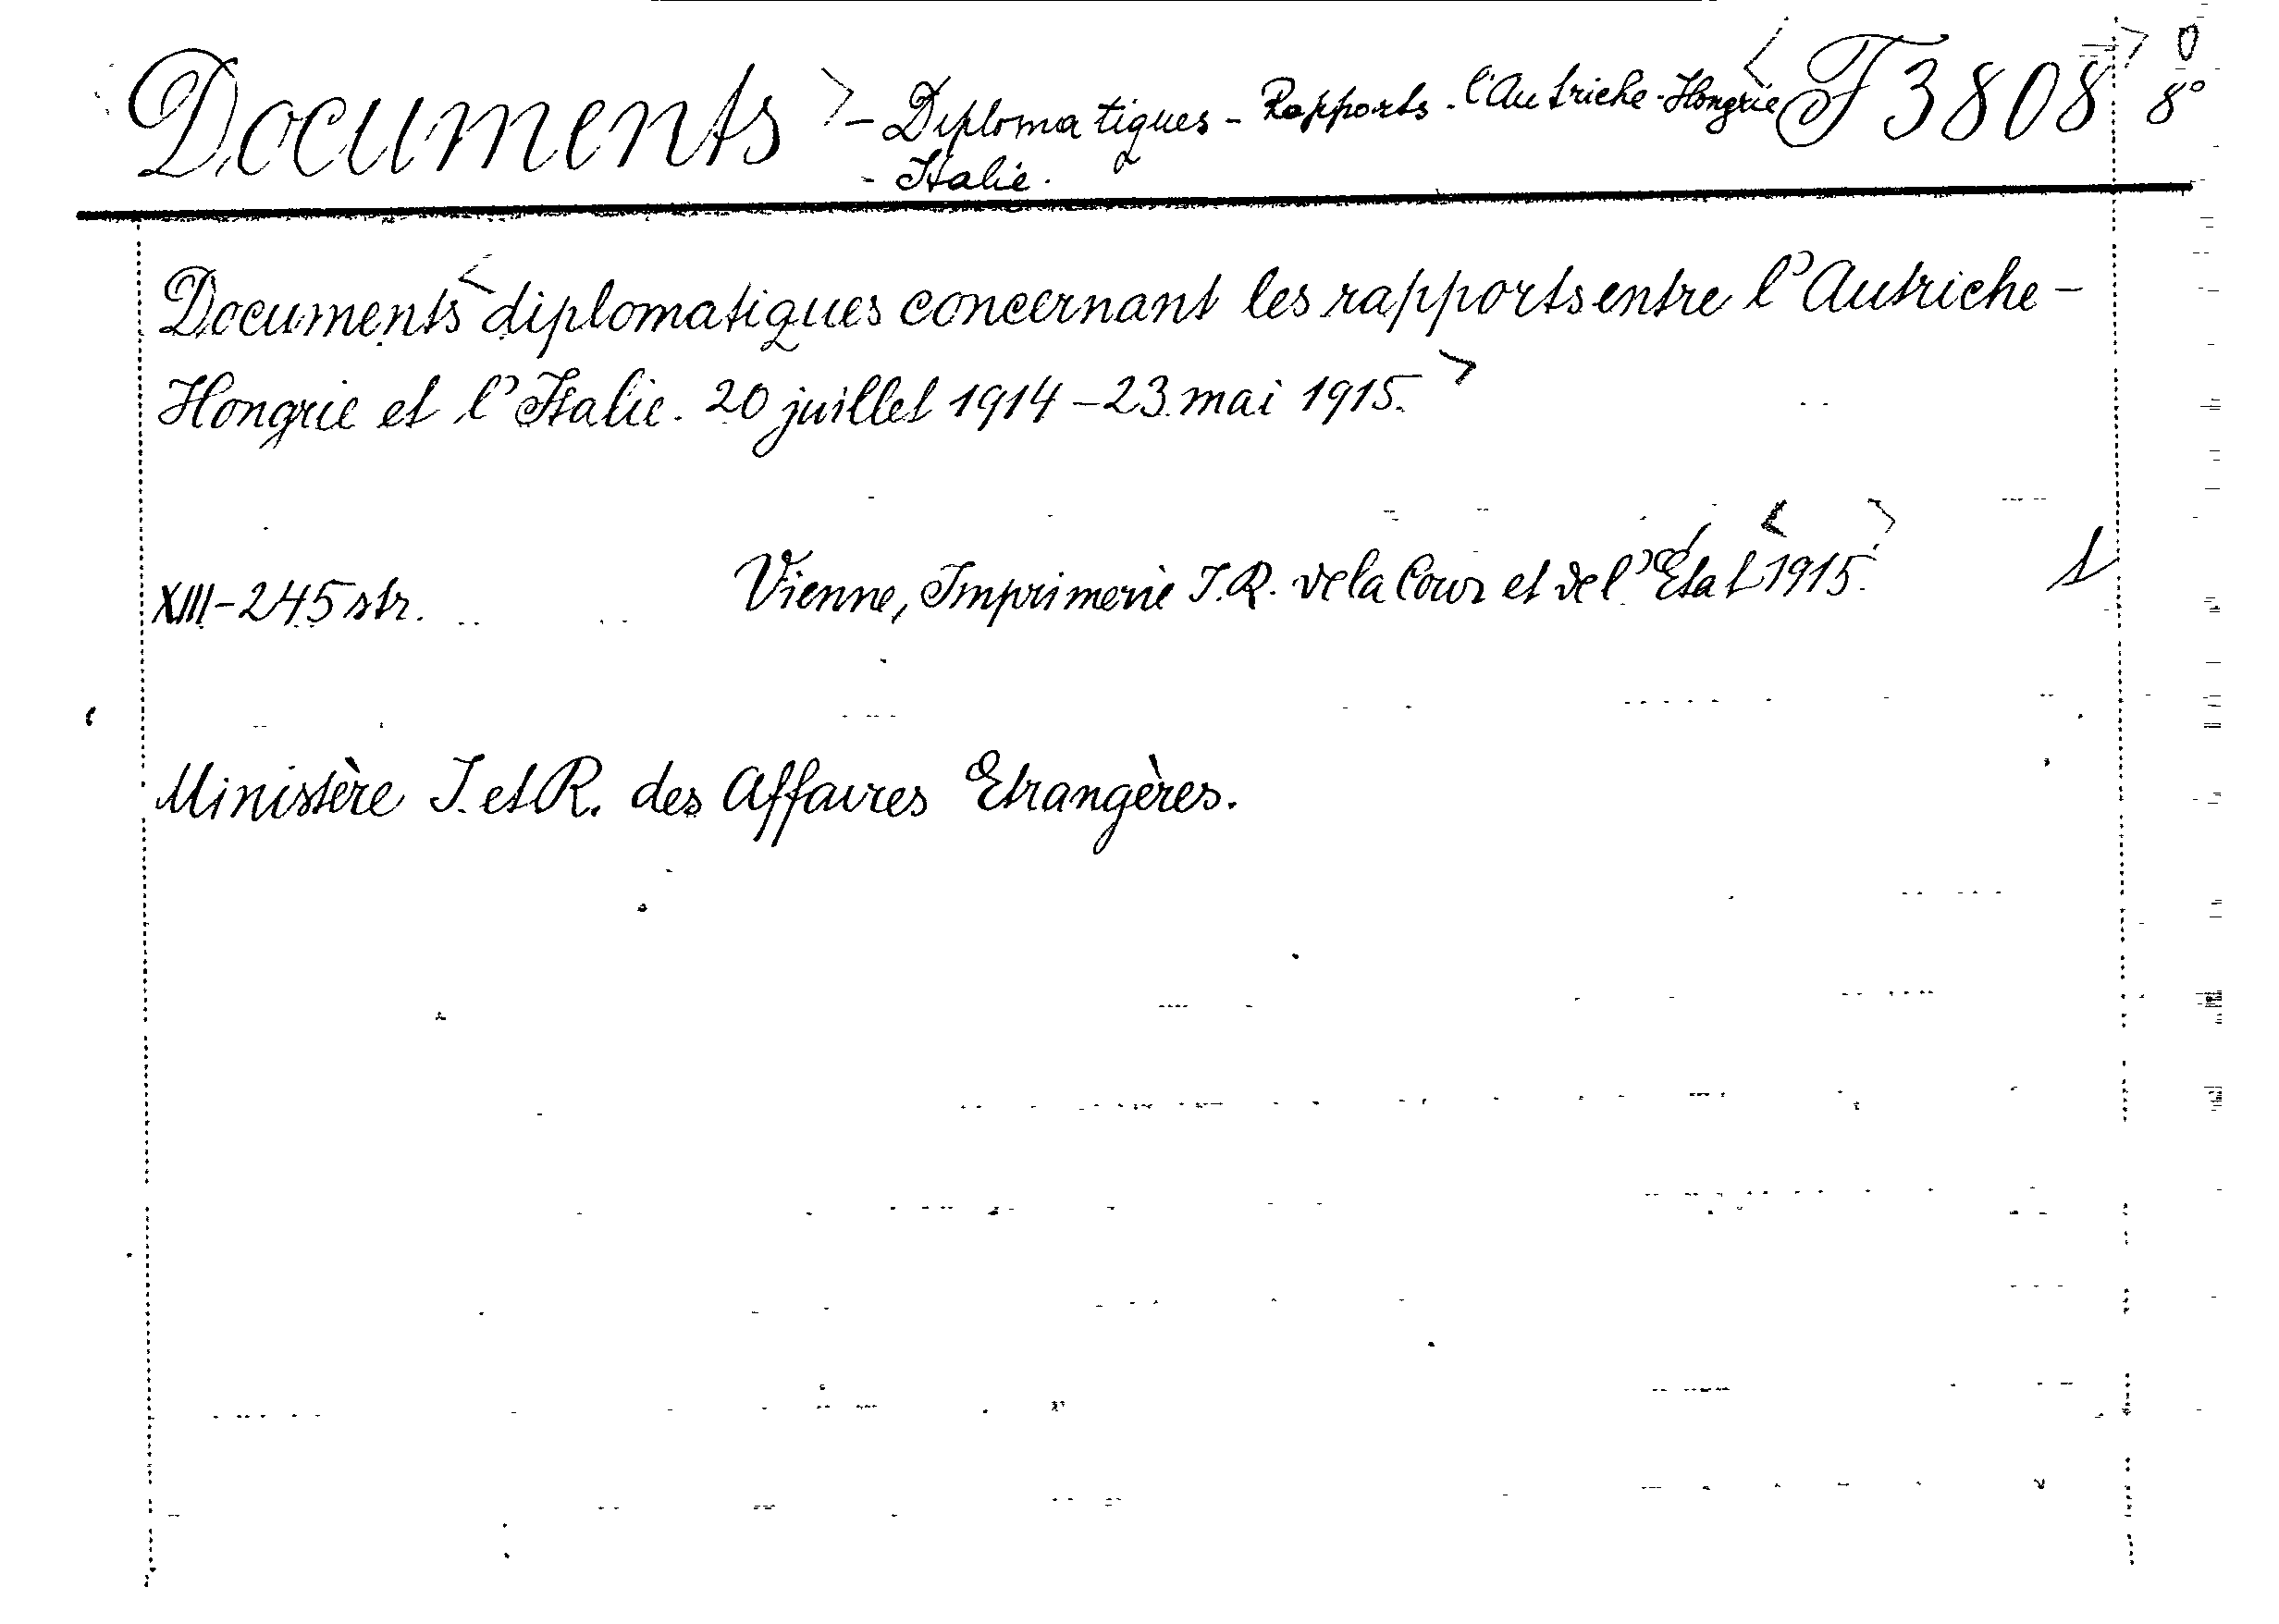 Documents - Diplomatiques - Rapports - l'Autriche-Hongrie F 3808 8°
- Italie.
Documents diplomatiques concernant les rapports entre l'Autriche-
Hongrie et l'Italie. 20 juillet 1914 - 23 mai 1915.
XIII-245 str. Vienne, Imprimerie I.R. de la Cour et de l'État 1915. 1
Ministère I. et R. des Affaires Etrangères.